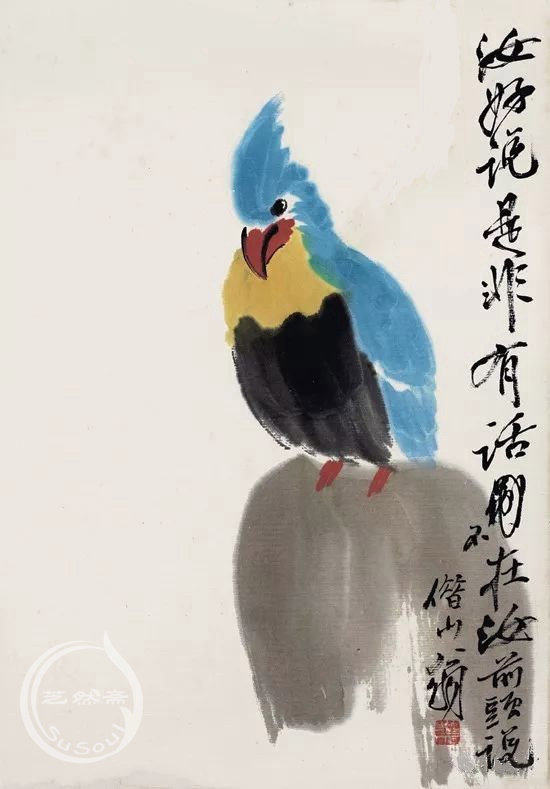 汝好说是非有话不在汝前头说
借山翁
SuSoul